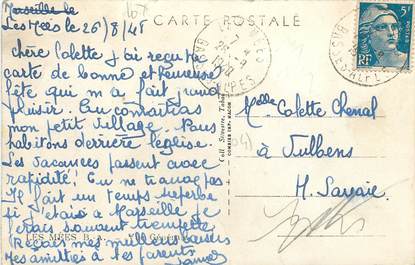 107
CARTE POSTALE
Marseille le
Les Mées le 26/8/48
Chère Colette j'ai reçu ta
carte de bonne et heureuse
fête qui m'a fait grand
plaisir. Tu connaîtras
mon petit village. Nous
habitons derrière l'église.
Les vacances passent avec
rapidité! Tu ne trouves pas
Il fait un temps superbe
si j'étais à Marseille je
ferais souvent trempette
Reçois mes meilleurs baisers
Mes amitiés à tes parents
LES MÉES B. A.
Mlle Colette Chenal
à Vulbens
H. Savoie
5F
RF
BASSES ALPES
COMBIER IMP. MACON